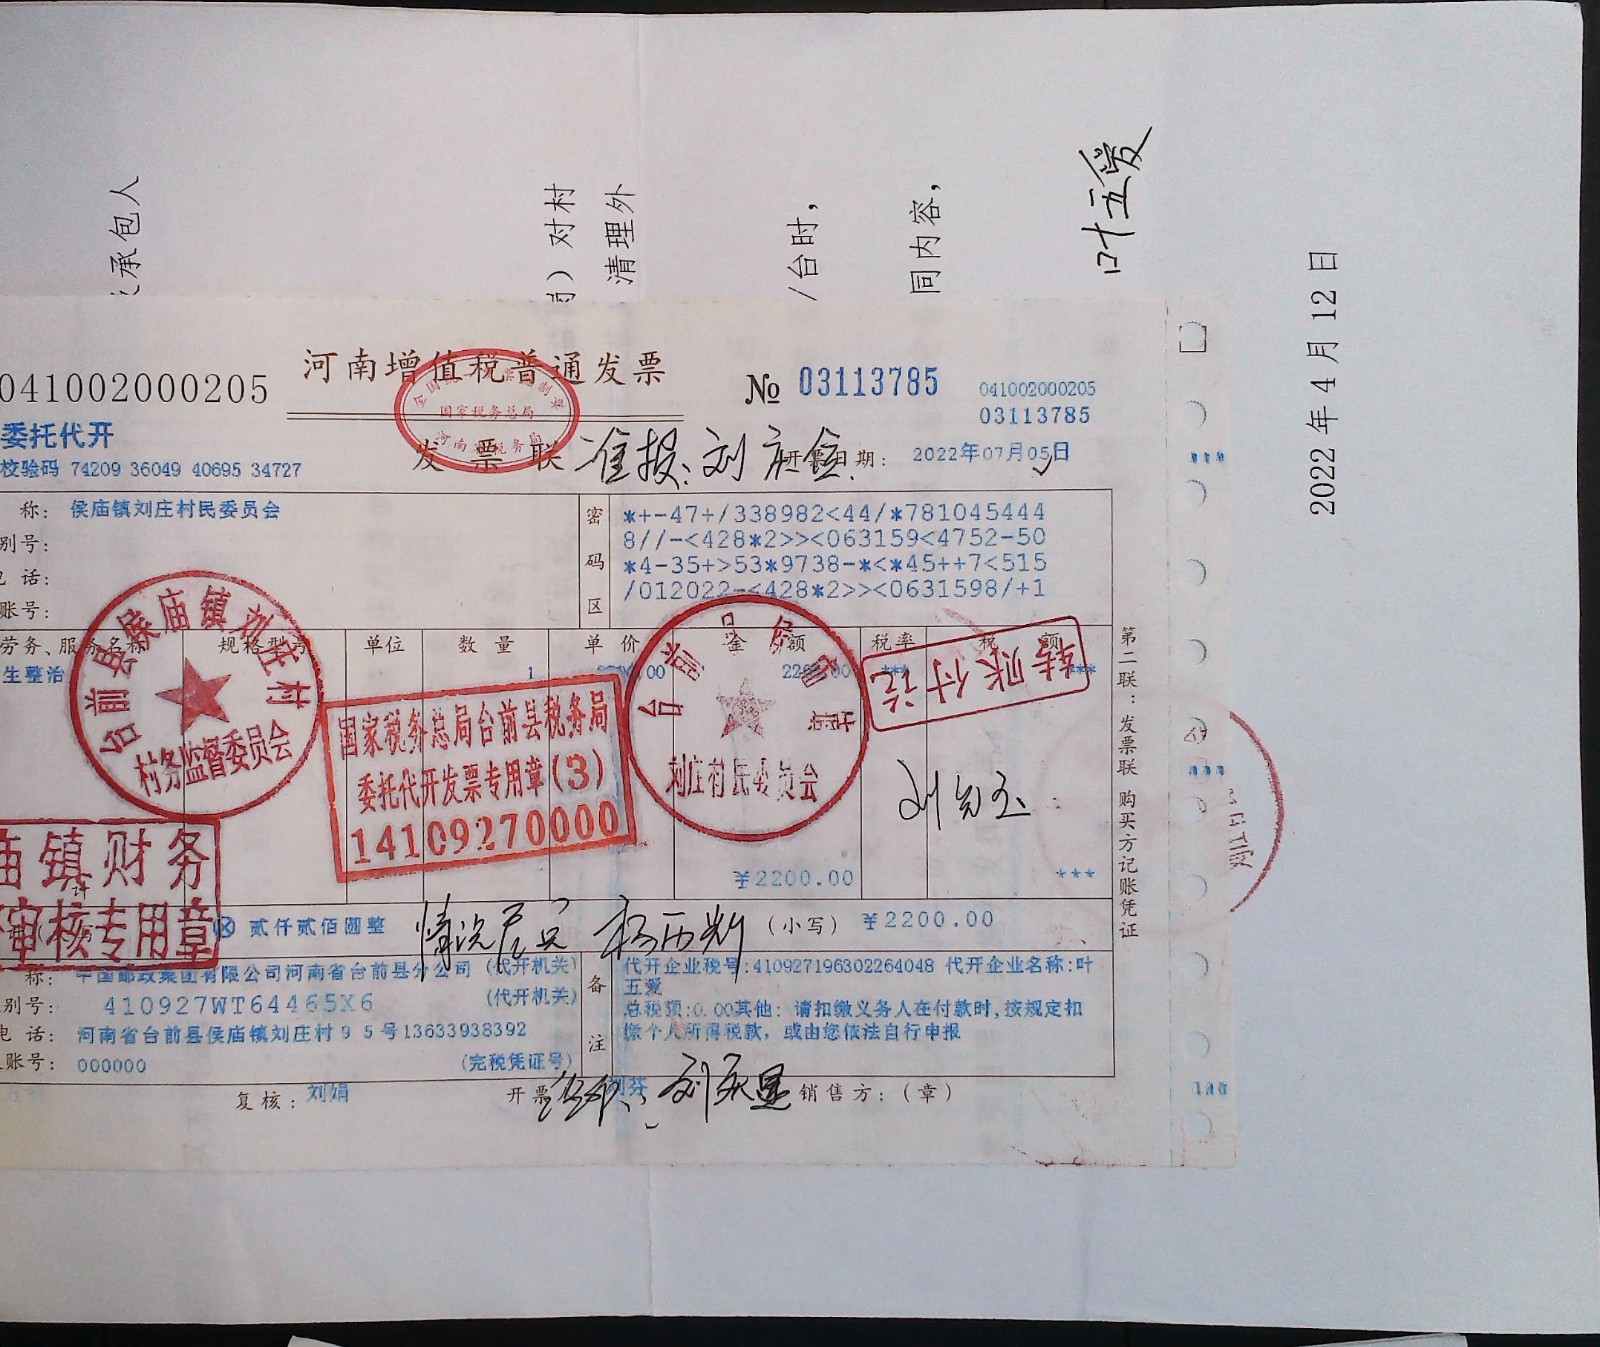 承包人
）对村
清理外
/台时，
同内容，
叶五爱
2022年4月12日
河南增值税普通发票
041002000205
№ 03113785
041002000205
03113785
委托代开
发票联
国家税务总局
准报：刘庆
开票日期：2022年07月05日
校验码 74209 36049 40695 34727
称：侯庙镇刘庄村民委员会
别号：
电 话：
账号：
密码区
*+-47+/338982<44/*781045444
8//-<428*2>><063159<4752-50
*4-35+>53*9738-*<*45++7<515
/012022-<428*2>><0631598/+1
劳务、服务名称
规格型号
单位
数 量
单 价
金 额
税率
税 额
生整治
1
***
***
台前县侯庙镇刘庄村
村务监督委员会
国家税务总局台前县税务局
委托代开发票专用章(3)
14109270000
刘庄村民委员会
转账付讫
第二联：发票联 购买方记账凭证
¥2200.00
***
庙镇财务
审核专用章
ⓧ 贰仟贰佰圆整
情况属实
（小写）¥2200.00
称：中国邮政集团有限公司河南省台前县分公司 (代开机关)
别号：410927WT64465X6 (代开机关)
电 话：河南省台前县侯庙镇刘庄村95号13633938392
账号：000000 (完税凭证号)
备注
代开企业税号:410927196302264048 代开企业名称:叶
五爱
总税额:0.00其他: 请扣缴义务人在付款时,按规定扣
缴个人所得税款, 或由您依法自行申报
复核：刘娟
开票
刘芬
销售方：（章）